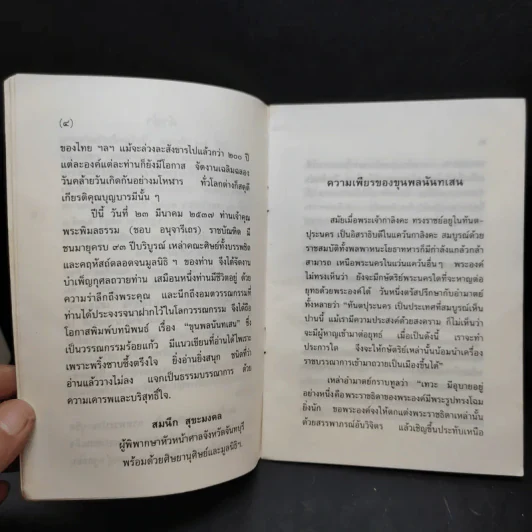 (๔)
ของไทย ฯลฯ แม้จะล่วงละสังขารไปแล้วกว่า ๒๐๐ ปี
แต่ละองค์แต่ละท่านก็ยังมีโอกาส จัดงานเฉลิมฉลอง
วันคล้ายวันเกิดกันอย่างมโหฬาร ทั่วโลกต่างก็สดุดี
เกียรติคุณบุญบารมีนั้น ๆ
ปีนี้ วันที่ ๒๓ มีนาคม ๒๕๓๗ ท่านเจ้าคุณ
พระพิมลธรรม (ชอบ อนุจารีเถร) ราชบัณฑิต มี
ชนมายุครบ ๙๓ ปีบริบูรณ์ เหล่าคณะศิษย์ทั้งบรรพชิต
และคฤหัสถ์ตลอดจนมูลนิธิ ฯ ของท่าน จึงได้จัดงาน
บำเพ็ญกุศลถวายท่าน เสมือนหนึ่งท่านมีชีวิตอยู่ ด้วย
ความรำลึกถึงพระคุณ และนึกถึงอมตวรรณกรรมที่
ท่านได้ประจงรจนาฝากไว้ในโลกวรรณกรรม จึงได้ถือ
โอกาสพิมพ์บทนิพนธ์ เรื่อง "ขุนพลนันทเสน" ซึ่ง
เป็นวรรณกรรมร้อยแก้ว มีแนวเขียนที่อ่านได้ไพเราะ
เพราะพริ้งซาบซึ้งตรึงใจ ยิ่งอ่านยิ่งสนุก ชนิดที่ว่า
อ่านแล้ววางไม่ลง แจกเป็นธรรมบรรณาการ ด้วย
ความเคารพและบริสุทธิ์ใจ.
สมนึก สุขะมงคล
ผู้พิพากษาหัวหน้าศาลจังหวัดจันทบุรี
พร้อมด้วยศิษยานุศิษย์และมูลนิธิฯ
ความเพียรของขุนพลนันทเสน
สมัยเมื่อพระเจ้ากาลิงคะ ทรงราชย์อยู่ในทันต-
ปุระนคร เป็นอิสราธิบดีในแคว้นกาลิงคะ สมบูรณ์ด้วย
ราชสมบัติทั้งพลพาหนะโยธาทหารก็มีกำลังแกล้วกล้า
สามารถ เหนือพระนครในแว่นแคว้นอื่น ๆ พระองค์
ไม่ทรงเห็นว่า ยังจะมีกษัตริย์พระนครใดที่จะหาญต่อ
ยุทธด้วยพระองค์ได้ วันหนึ่งตรัสปรึกษากับอำมาตย์
ทั้งหลายว่า "ทันตปุระนคร เป็นประเทศที่สมบูรณ์เห็น
ปานนี้ แม้เรามีความประสงค์ด้วยสงคราม ก็ไม่เห็นว่า
จะมีผู้หาญเข้ามาต่อยุทธ์ เมื่อเป็นดังนี้ เราจะทำ
ประการใด จึงจะให้กษัตริย์เหล่านั้นน้อมนำเครื่อง
ราชบรรณาการเข้ามาถวายเป็นเมืองขึ้นได้"
เหล่าอำมาตย์กราบทูลว่า "เทวะ มีอุบายอยู่
อย่างหนึ่งคือพระราชธิดาของพระองค์ มีพระรูปทรงโฉม
ยิ่งนัก ขอพระองค์จงให้ตกแต่งพระราชธิดาเหล่านั้น
ด้วยสรรพาภรณ์อันวิจิตร แล้วเชิญขึ้นประทับเหนือ